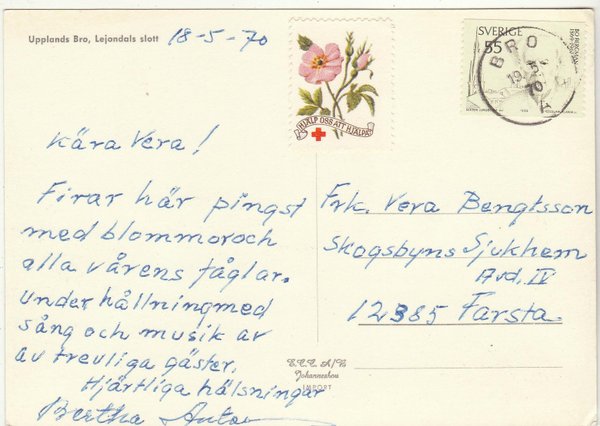 Upplands Bro, Lejondals slott
18-5-70
HJÄLP OSS ATT HJÄLPA
SVERIGE
55
BRO
19.5.
70
A
Kära Vera!
Firar här pingst
med blommor och
alla vårens fåglar.
Under hållning med
sång och musik av
av trevliga gäster.
Hjärtliga hälsningar
Bertha
Frk. Vera Bengtsson
Skogsbyns Sjukhem
Avd. IV
12385 Farsta.
Johanneshov
IMPORT